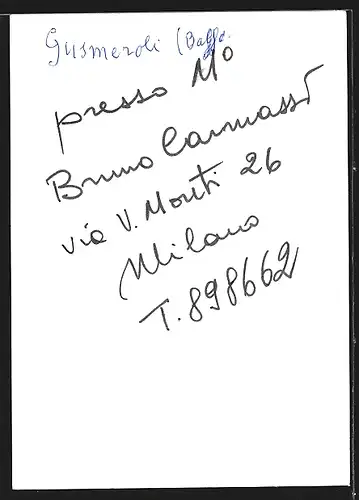 Gusmeroli (Basso.
presso Mo
Bruno Carmassi
via V. Monti 26
Milano
T. 898662